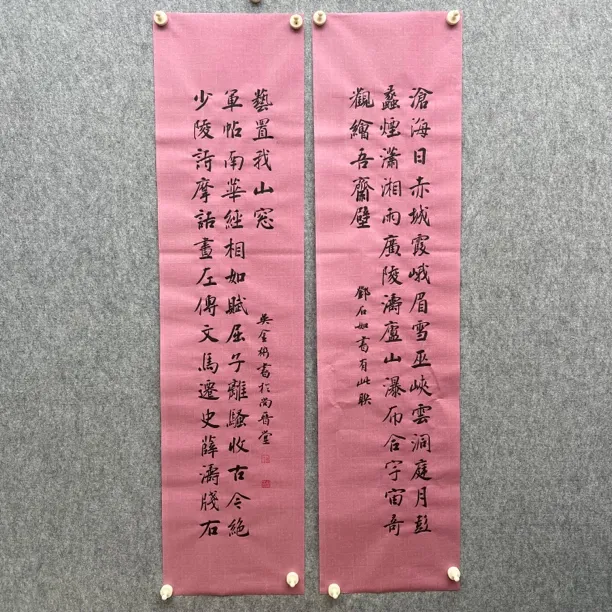 滄海日赤城霞峨眉雪巫峽雲洞庭月彭
蠡煙瀟湘雨廣陵濤廬山瀑布合宇宙奇
觀繪吾齋壁
鄧石如書有此联
少陵詩摩詰畫左傳文馬遷史薛濤牋右
軍帖南華經相如賦屈子離騷收古今絕
藝置我山窓
吳金書於尚晉堂